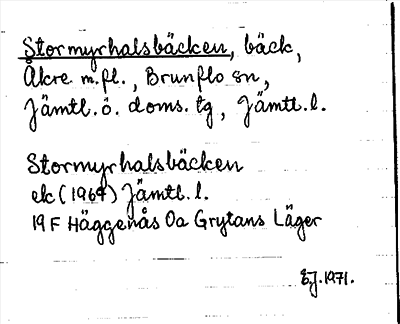 Stormyrhalsbäcken, bäck,
Åkre m.fl., Brunflo sn,
Jämtl. ö. doms. tg, Jämtl. l.
Stormyrhalsbäcken
ek (1964) Jämtl. l.
19 F Häggenås 0a Grytans Läger
EJ. 1971.